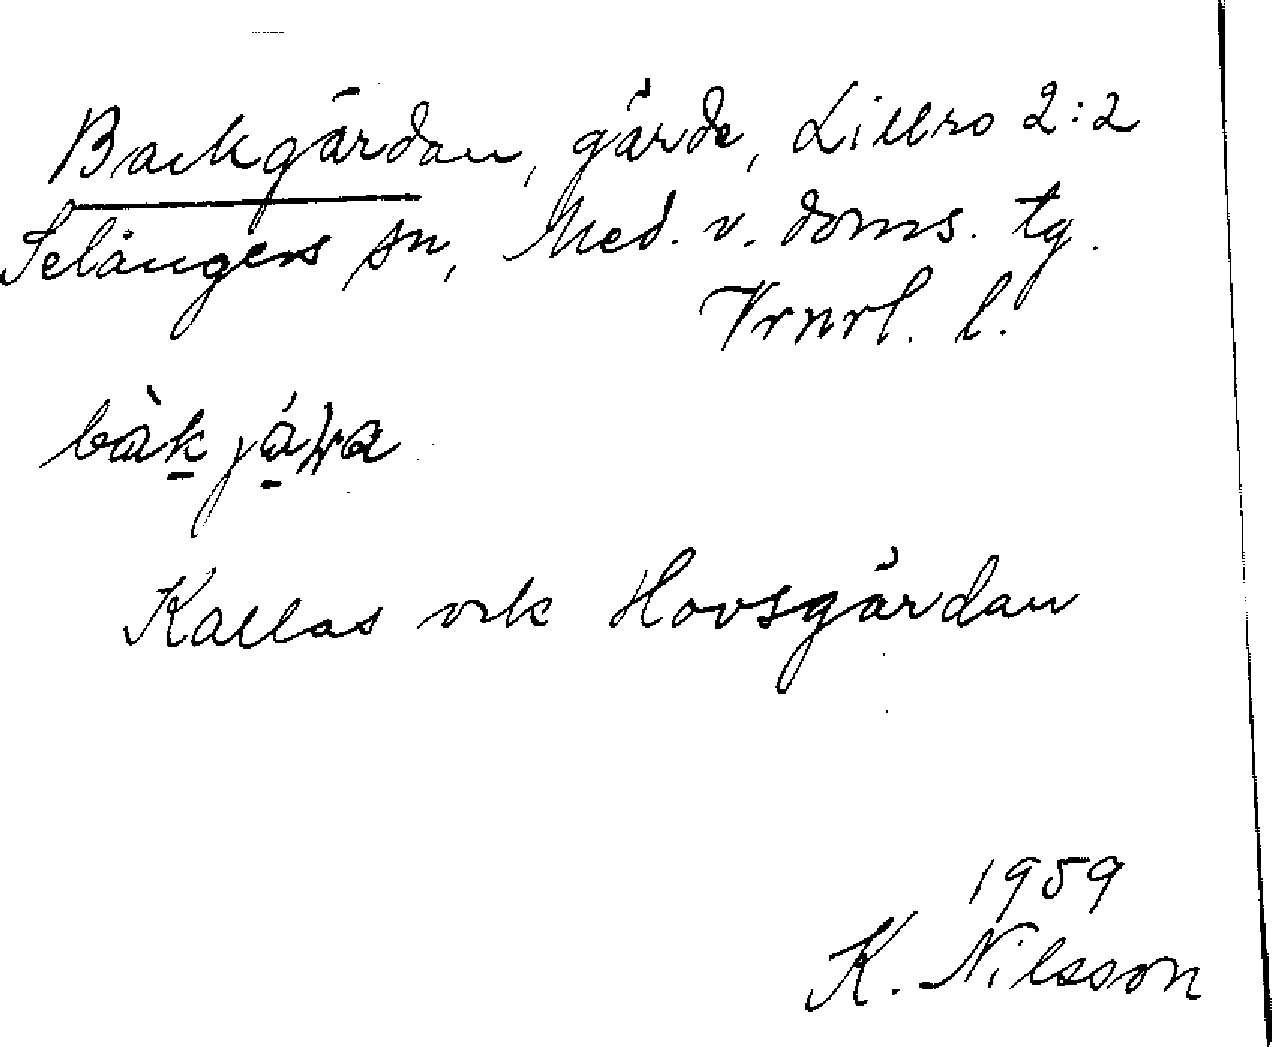 Backgärdan, gärde, Lillro 2:2
Selångers sn, Med. v. doms. tg.
Vrnrl. l.
Kallas ock Hovsgärdan
1959
K. Nilsson